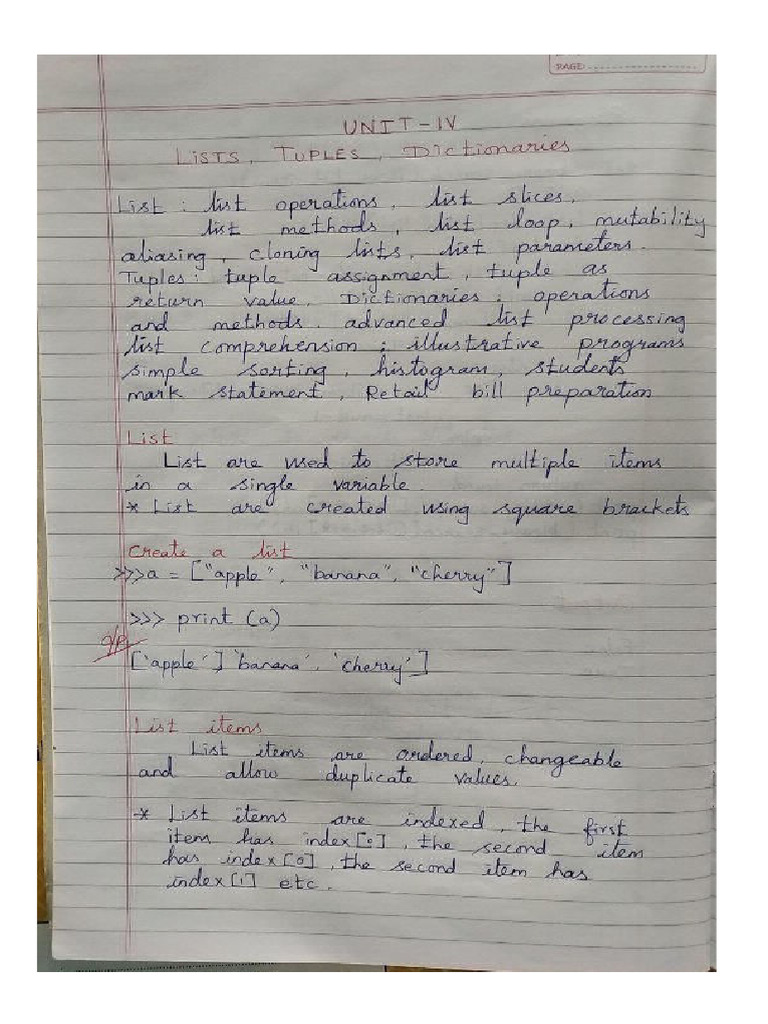 PAGE
UNIT-IV
LISTS, TUPLES, Dictionaries
List : list operations, list slices,
list methods, list loop, mutability
aliasing, cloning lists, list parameters.
Tuples: tuple assignment, tuple as
return value. Dictionaries: operations
and methods. advanced list processing
list comprehension ; illustrative programs
simple sorting, histogram, students
mark statement, Retail bill preparation
List
List are used to store multiple items
in a single variable.
* List are created using square brackets
Create a list
>>>a = ["apple", "banana", "cherry"]
>>> print (a)
O/P
['apple'] 'banana', 'cherry']
List items
List items are ordered, changeable
and allow duplicate values.
* List items are indexed, the first
item has index[0], the second item
has index[0], the second item has
index[1] etc.